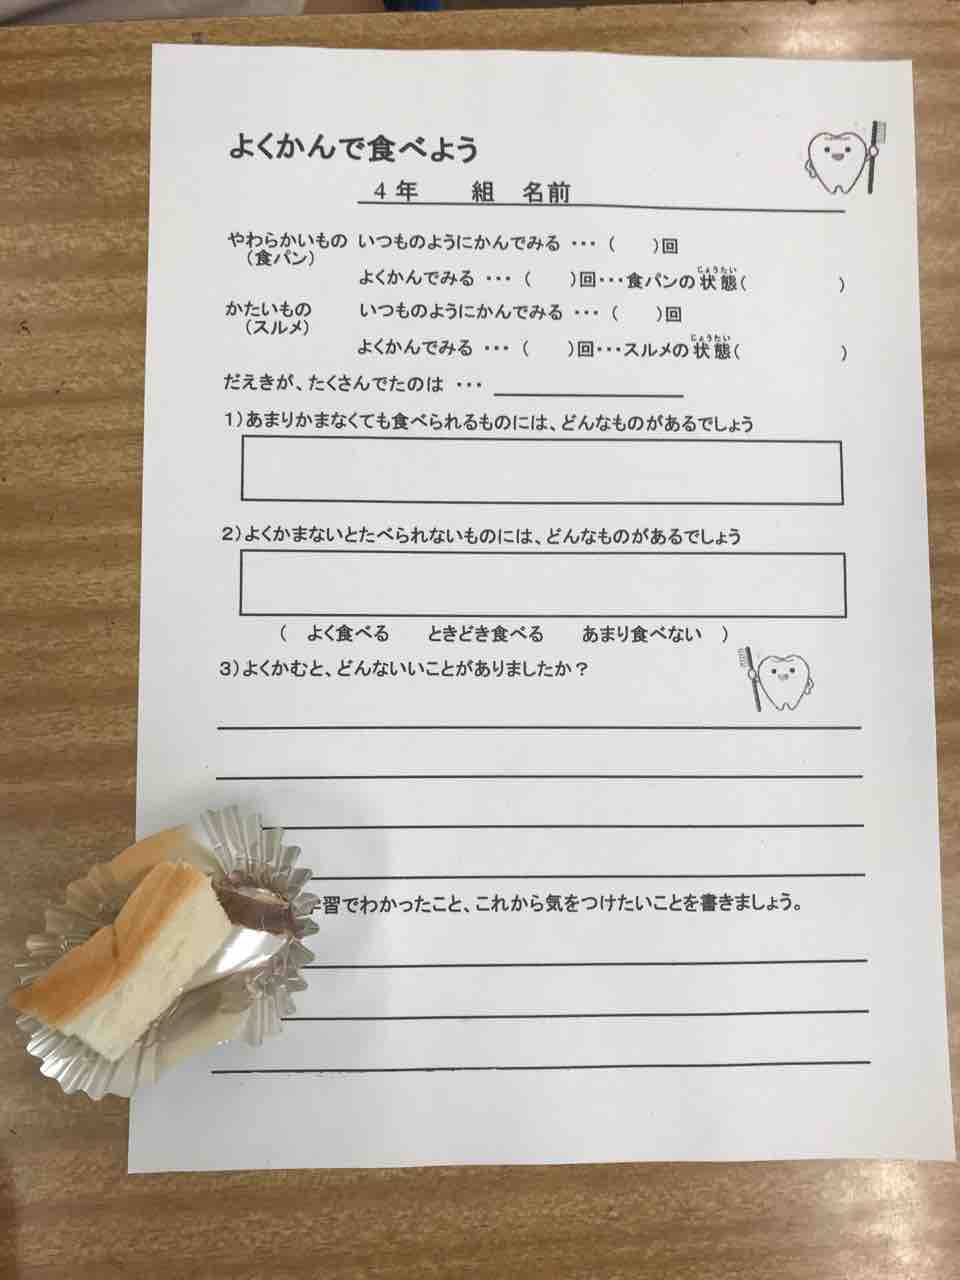 よくかんで食べよう
4年　組　名前
やわらかいもの　いつものようにかんでみる … (　　)回
(食パン)
よくかんでみる … (　　)回…食パンの状態(　　　　)
じょうたい
かたいもの　いつものようにかんでみる … (　　)回
(スルメ)
よくかんでみる … (　　)回…スルメの状態(　　　　)
じょうたい
だえきが、たくさんでたのは …
1)あまりかまなくても食べられるものには、どんなものがあるでしょう
2)よくかまないとたべられないものには、どんなものがあるでしょう
(　よく食べる　ときどき食べる　あまり食べない　)
3)よくかむと、どんないいことがありましたか？
習でわかったこと、これから気をつけたいことを書きましょう。